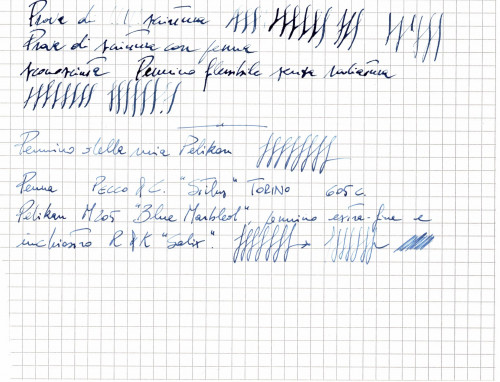 Prova di scrittura
Prova di scrittura con penna
sconosciuta Pennino flessibile senza indicazione
Pennino della mia Pelikan
Penna PECCO & C. "Stilus" TORINO 605 C.
Pelikan M205 "Blue Marbled", pennino extra-fine e
inchiostro R & K "Salix".